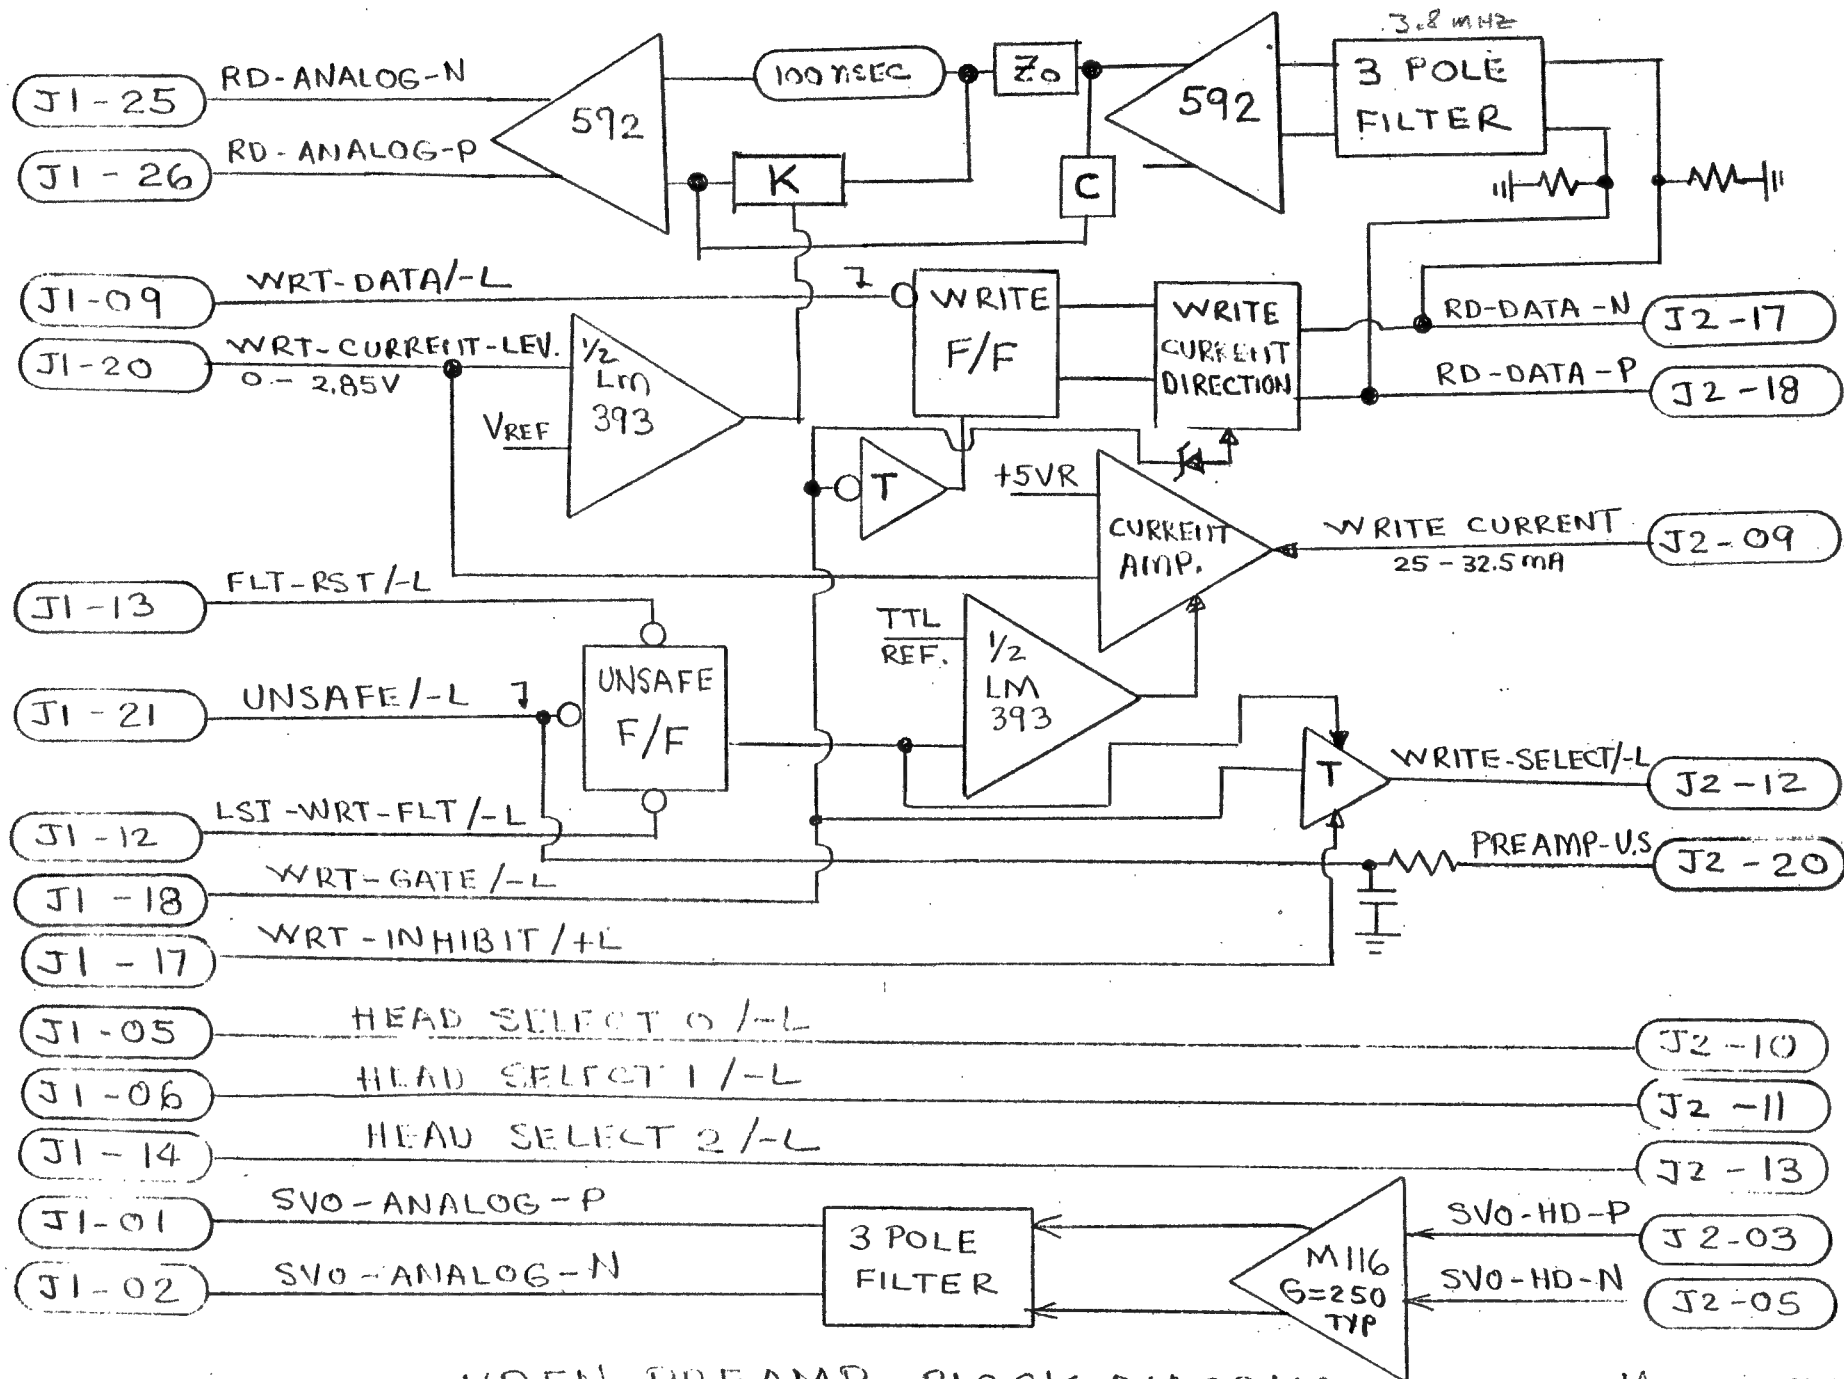 3.8 MHZ
J1-25
RD-ANALOG-N
592
100 NSEC
Zo
592
3 POLE
FILTER
J1-26
RD-ANALOG-P
K
C
J1-09
WRT-DATA/-L
WRITE
F/F
WRITE
CURRENT
DIRECTION
RD-DATA-N
J2-17
J1-20
WRT-CURRENT-LEV.
0.- 2.85V
1/2
LM
393
VREF
RD-DATA-P
J2-18
T
+5VR
CURRENT
AMP.
WRITE CURRENT
25-32.5mA
J2-09
J1-13
FLT-RST/-L
TTL
REF.
1/2
LM
393
J1-21
UNSAFE/-L
UNSAFE
F/F
T
WRITE-SELECT/-L
J2-12
J1-12
LSI-WRT-FLT/-L
PREAMP-U.S
J2-20
J1-18
WRT-GATE/-L
J1-17
WRT-INHIBIT/+L
J1-05
HEAD SELECT 0/-L
J2-10
J1-06
HEAD SELECT 1/-L
J2-11
J1-14
HEAD SELECT 2/-L
J2-13
J1-01
SVO-ANALOG-P
3 POLE
FILTER
M116
G=250
TYP
SVO-HD-P
J2-03
J1-02
SVO-ANALOG-N
SVO-HD-N
J2-05
PREAMP BLOCK DIAGRAM